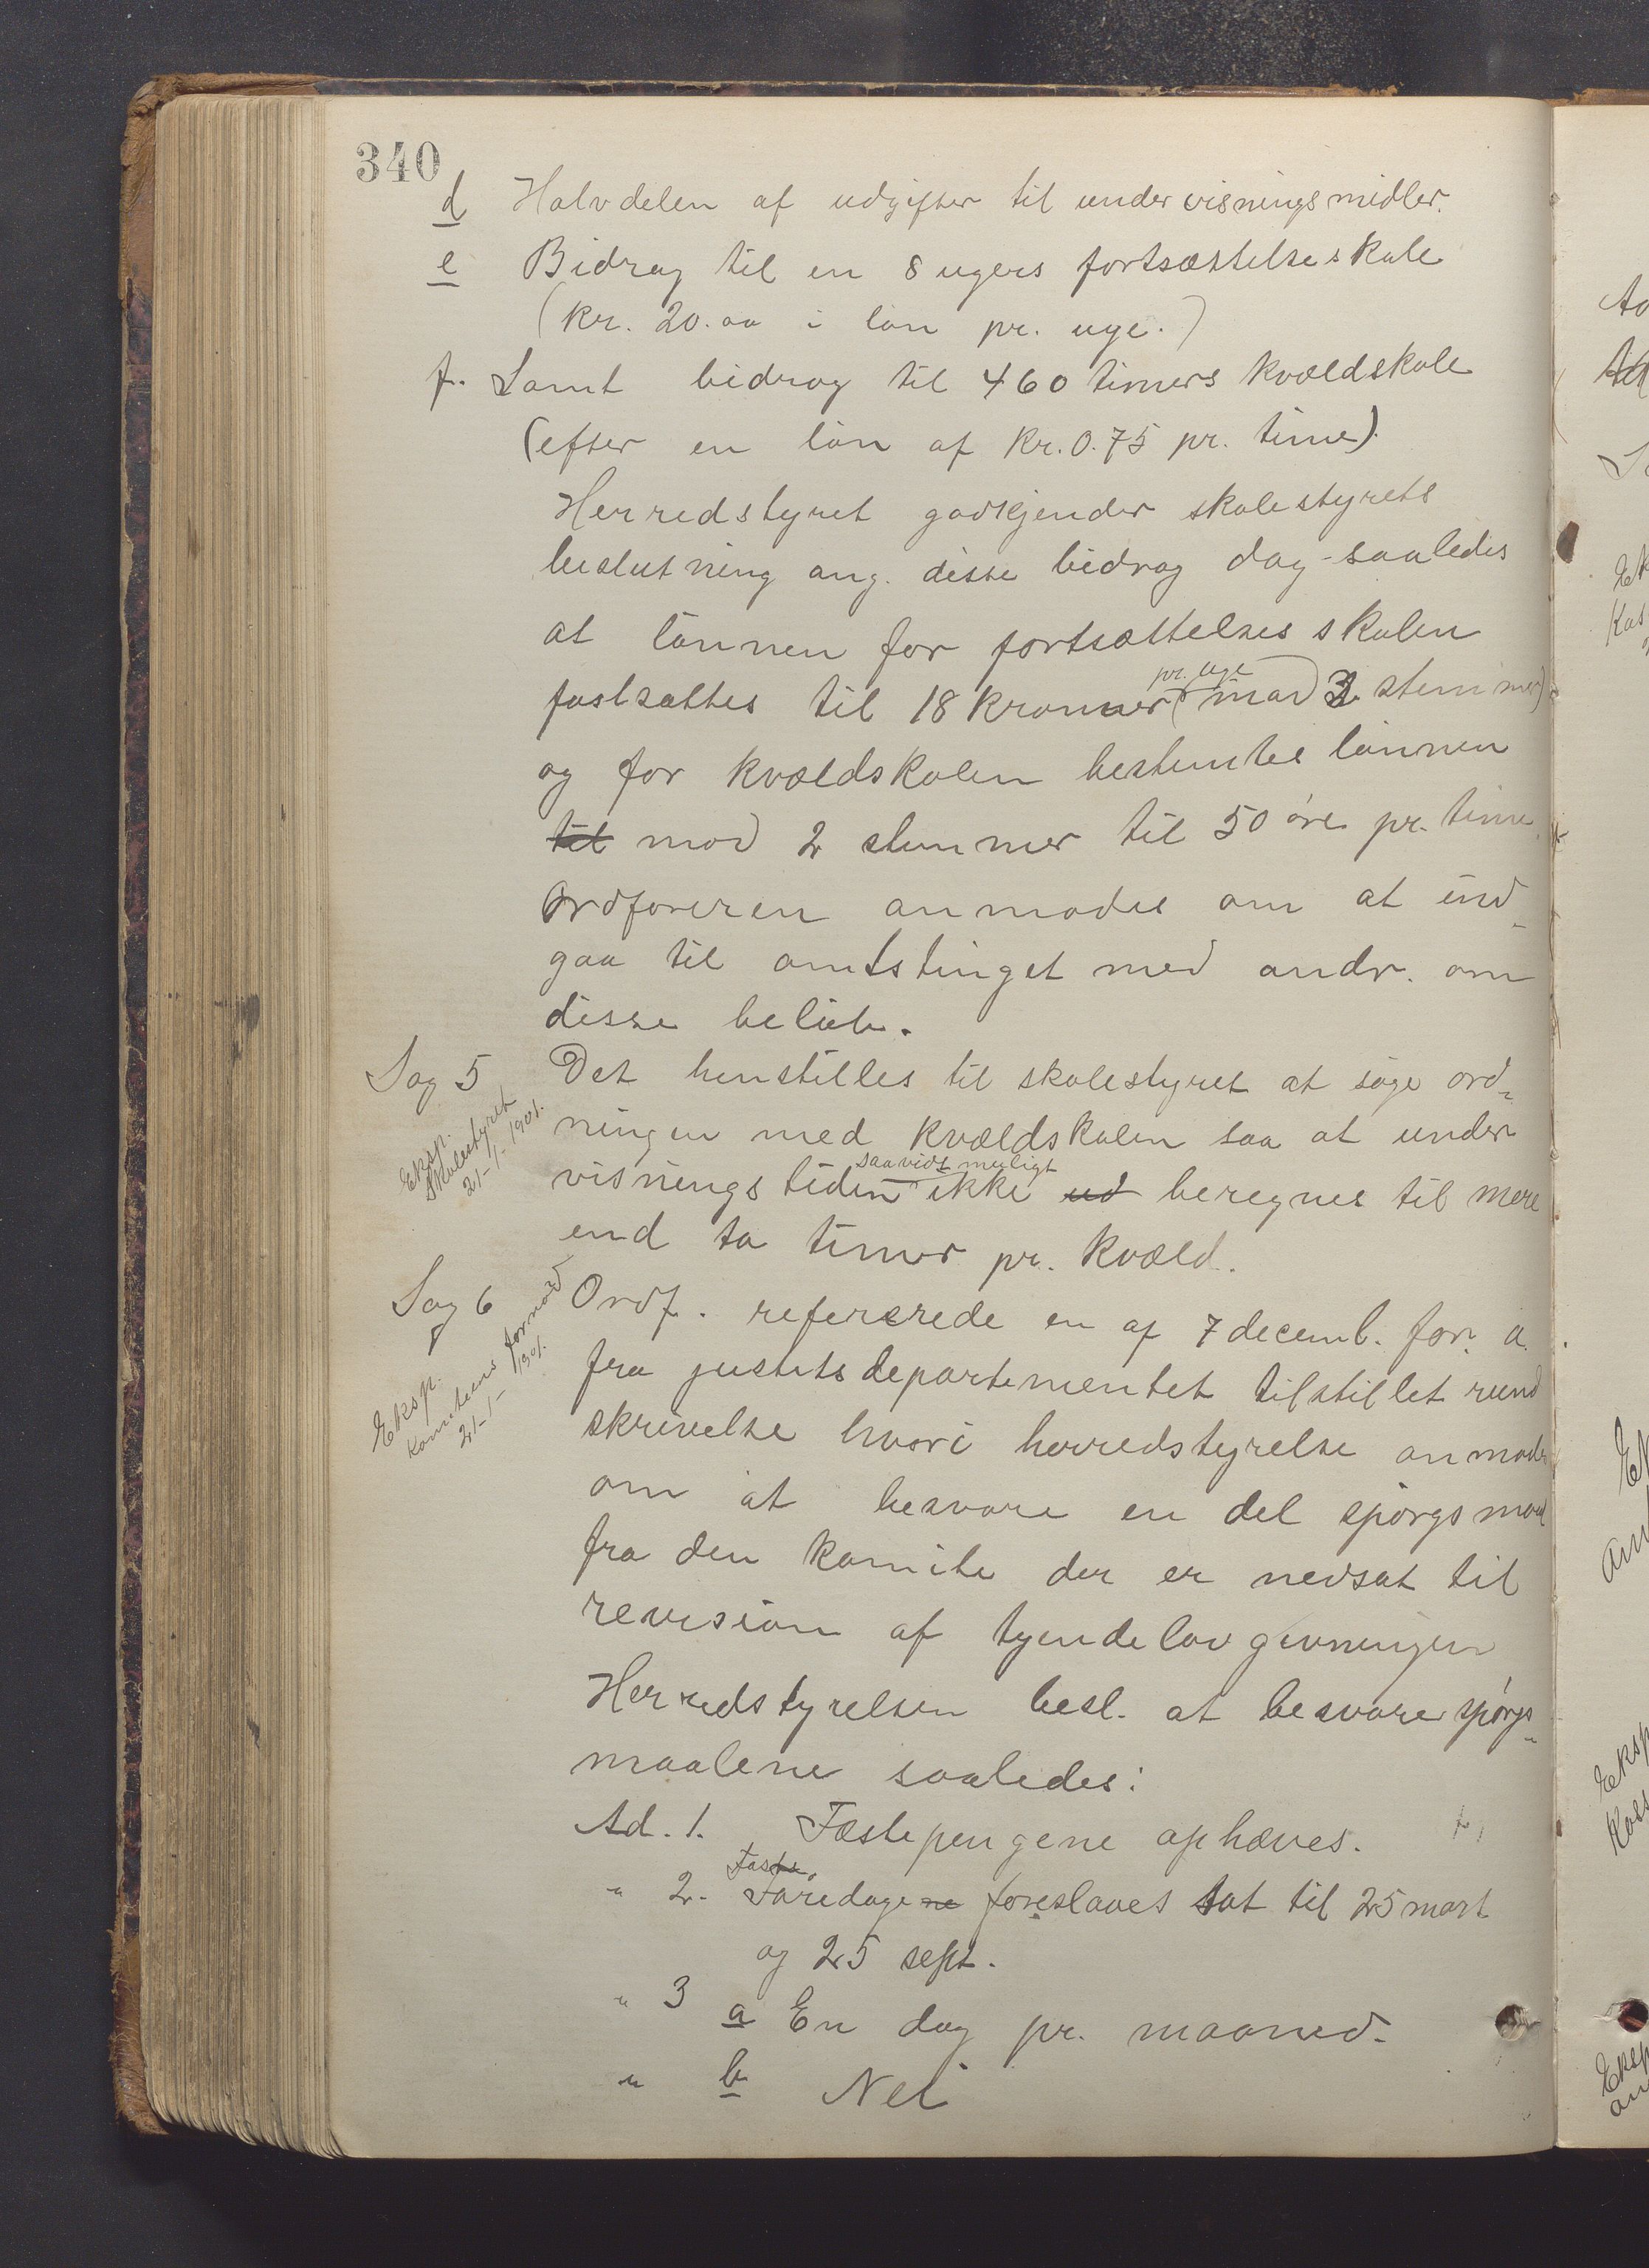 340
d Halvdelen af udgifter til undervisningsmidler.
e Bidrag til en 8 ugers fortsættelseskole
(kr. 20.00 i løn pr. uge.)
f. Samt bidrag til 460 timers kvældskole
(efter en løn af kr. 0.75 pr. time).
Herredstyret godkjender skolestyrets
beslutning ang. disse bidrag dog saaledes
at lønnen for fortsættelsesskolen
fastsættes til 18 kroner pr. uge (mod 3 stemmer)
og for kvældskolen bestemtes lønnen
til mod 2 stemmer til 50 øre pr. time.
Ordføreren anmodes om at ind-
gaa til amtstinget med andr. om
disse beløb.
Sag 5 Det henstilles til skolestyret at søge ord-
ningen med kvældskolen saa at under
visningstiden saavidt muligt ikke ud beregnes til mere
end to timer pr. kvæld.
Eksp.
Skolestyret
21-1-1901.
Sag 6 Ordf. refererede en af 7 decemb. for. a.
fra justitsdepartementet tilstillet rund
skrivelse hvori herredstyrelse anmodes
om at besvare en del spørgsmaal
fra den komite der er nedsat til
revision af tyendelovgivningen
Eksp.
Komiteens formand
21-1-1901.
Herredstyrelsen besl. at besvare spørgs-
maalene saaledes:
Ad. 1. Fæstepengene ophæves.
" 2. Faste Faredagene foreslaaes sat til 25 mart
og 25 sept.
" 3 a En dag pr. maaned.
" b Nei